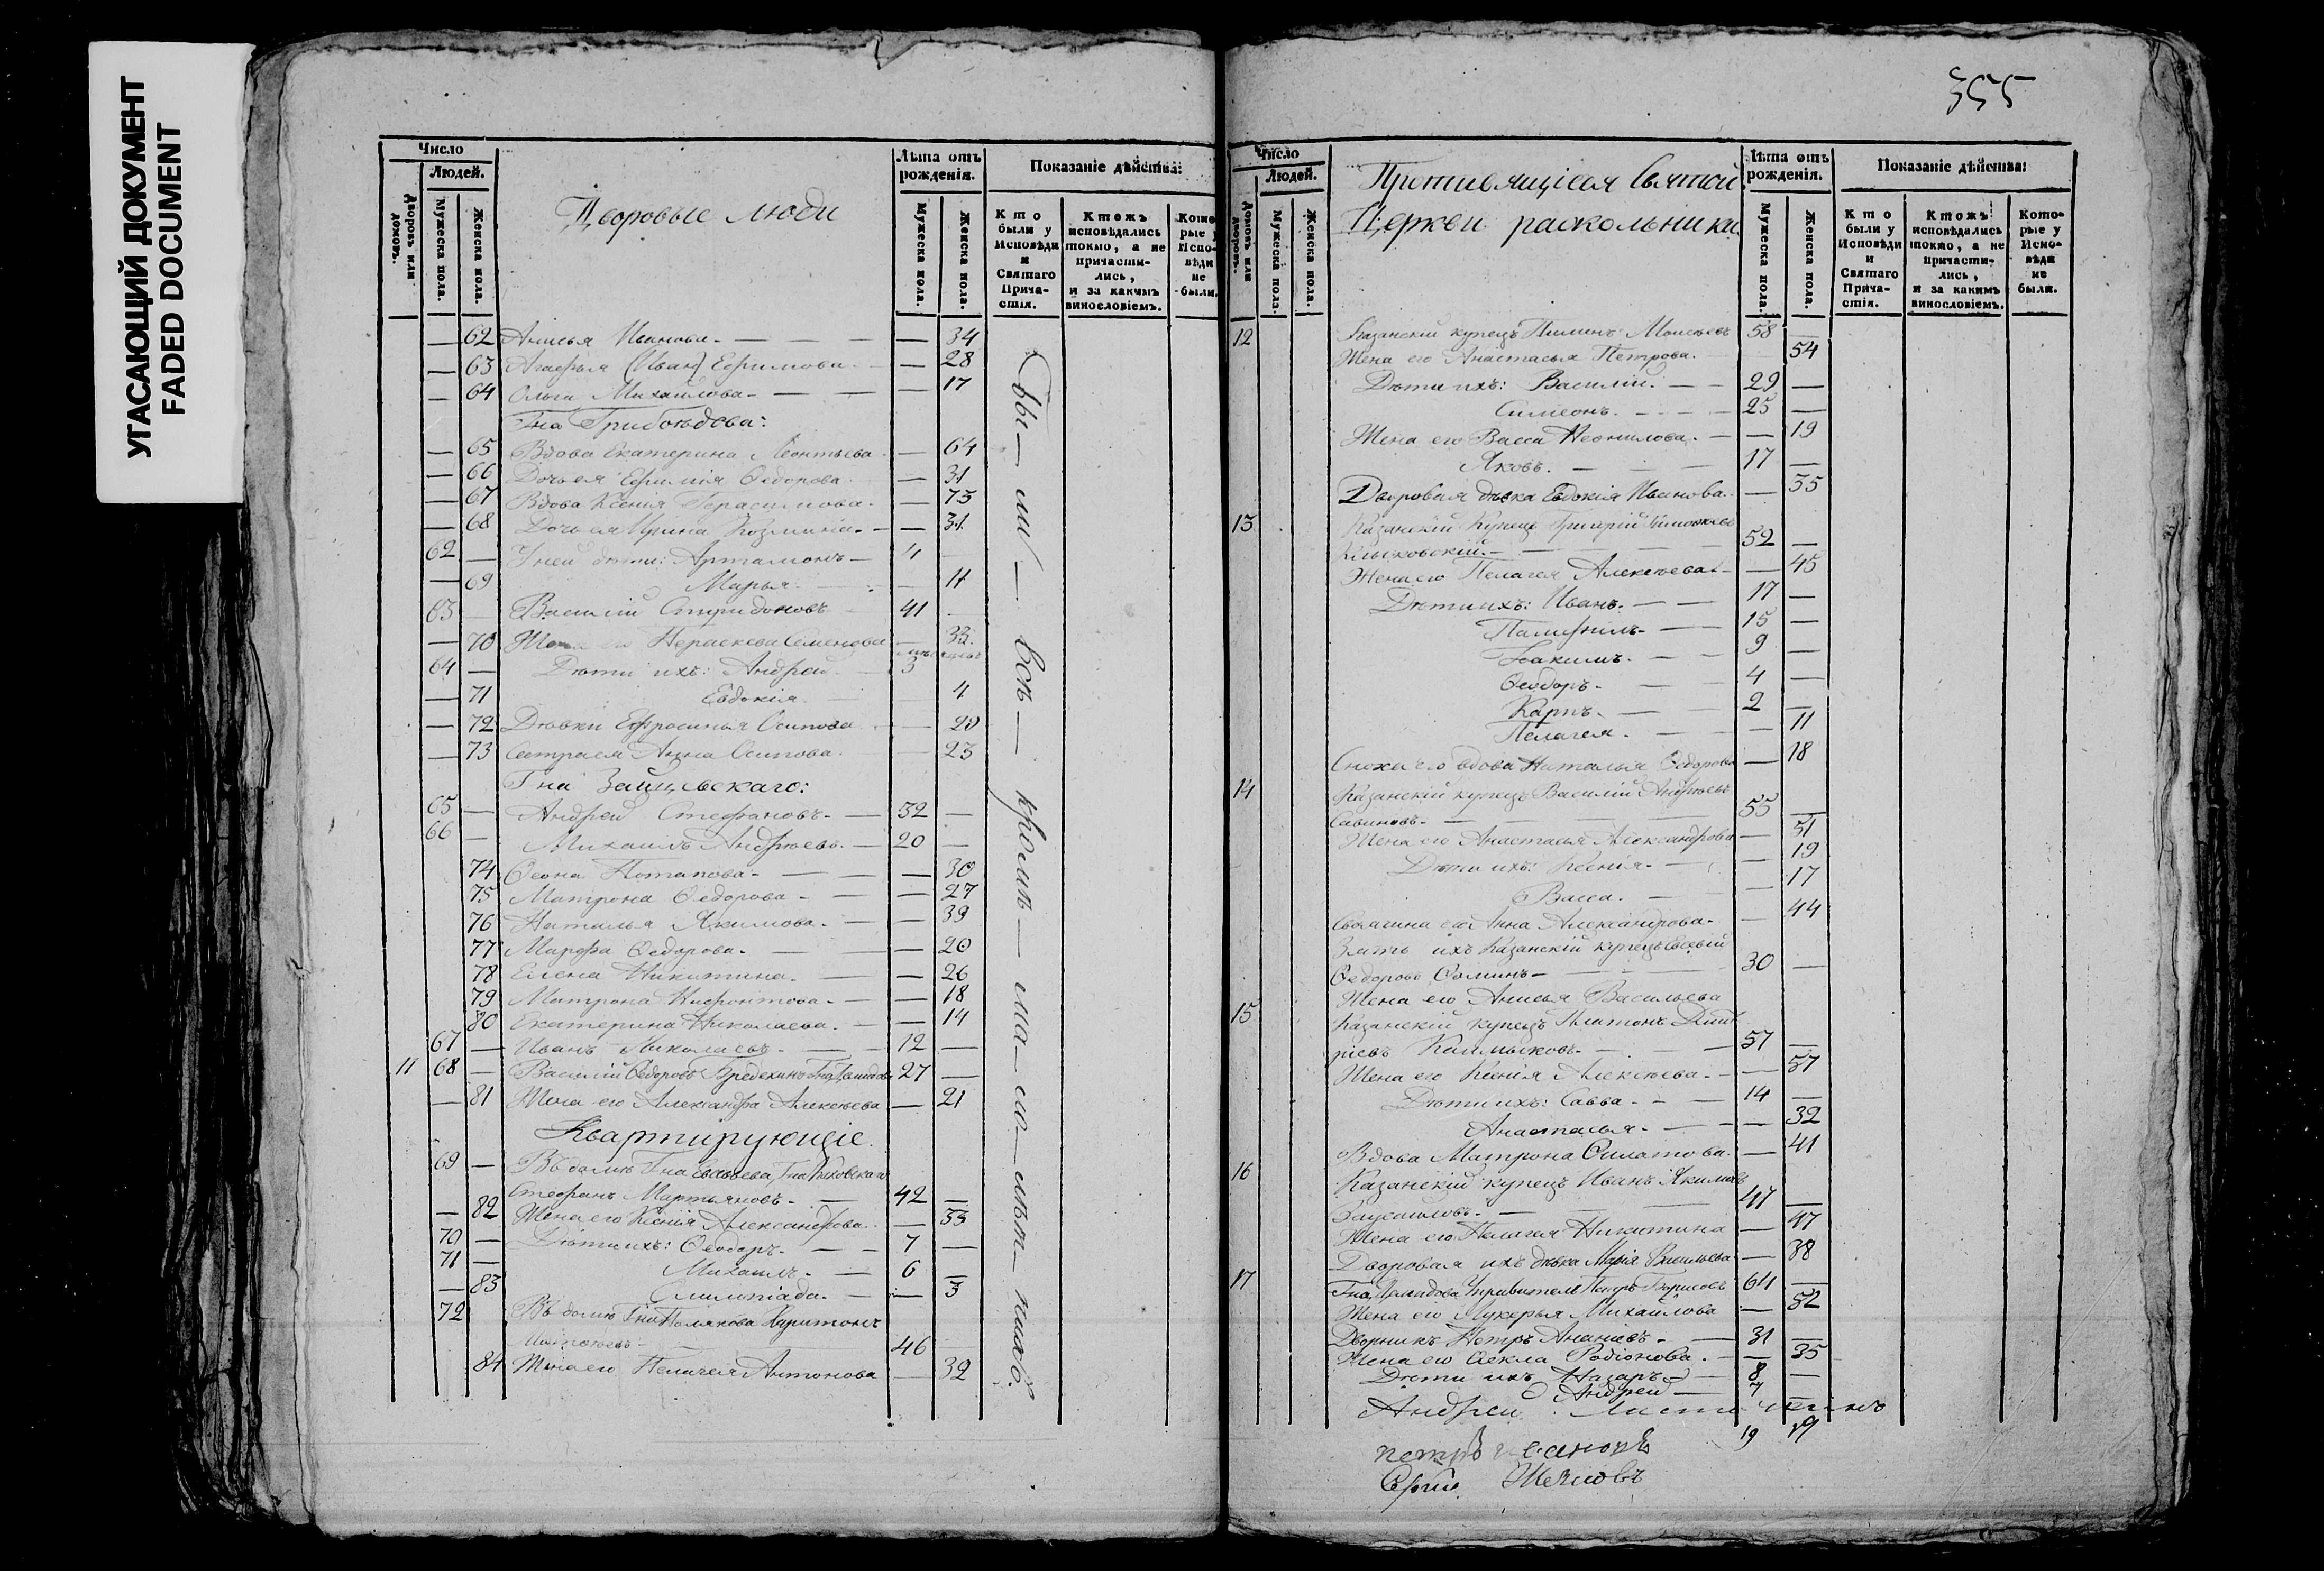 УГАСАЮЩИЙ ДОКУМЕНТ
FADED DOCUMENT
Число
Людей.
Дворовъ или домовъ.
Мужеска пола.
Женска пола.
Дворовые люди
Лѣта отъ рожденія.
Мужеска пола.
Женска пола.
Показаніе дѣйства:
Кто были у Исповѣди и Святаго Прича-стія.
Ктожъ исповѣдались токмо, а не причасти-лись, и за какимъ винословіемъ.
Кото рые у Испо-вѣди не были.
— 62 Анисья Иванова. — — 34
— 63 Агафья (Иван) Ефримова. — 28
— 64 Ольга Михайлова — — 17
Гна Грибоѣдова:
— 65 Вдова Екатерина Леонтьева — 64
— 66 Дочь ея Ефимія Ѳедорова — 31
— 67 Вдова Ксенія Герасимова — 73
— 68 Дочь ея Ирина Козмина — 31
62 — У ней дѣти: Артамонъ — 4
— 69 Марья — 11
63 — Василій Спиридоновъ 41
— 70 Жена его Параскева Семенова 33
64 — Дѣти ихъ: Андрей 3
— 71 Евдокія 4
— 72 Дѣвки Ефросинья Осипова — 20
— 73 Сестра ея Анна Осипова 23
Гна Зайцевскаго:
65 — Андрей Стефановъ — 32 —
66 — Михаилъ Андреевъ — 20 —
74 Ѳеона Потапова — — 30
75 Матрона Ѳедорова — — 27
76 Наталья Якимова — — 39
77 Марфа Ѳедорова — — 20
78 Елена Никитина — — 26
79 Матрона Нифонтова — — 18
80 Екатерина Николаева — — 14
67 — Иванъ Николаевъ — 12 —
11 68 — Василій Ѳедоровъ 27 —
— 81 Жена его Александра Алексѣева — 21
Квартирующіе.
69 — Въ домѣ Гна
Стефанъ Мартьяновъ — 42 —
— 82 Жена его Ксенія Александрова — 33
70 — Дѣти ихъ: Ѳеодоръ — 7 —
71 — Михаилъ — 6 —
— 83 Олимпіада — — 3
72 Въ домѣ Гна Полякова Харитонъ
46
84 Жена его Пелагея Антонова — 32
Бы — ли — всѣ — кромѣ — ма — ло — лѣт — нихъ.
355
Число
Людей.
Домовъ или дворовъ.
Мужеска пола.
Женска пола.
Противящіеся Святой
Церкви раскольники
Лѣта отъ рожденія.
Мужеска пола.
Женска пола.
Показаніе дѣйства:
Кто были у Исповѣди и Святаго Прича-стія.
Ктожъ исповѣдались токмо, а не причасти-лись, и за какимъ винословіемъ.
Кото-рые у Испо-вѣди не были.
12 Казанскій купецъ Пименъ Моисеевъ 58 —
Жена его Анастасья Петрова. 54
Дѣти ихъ: Василій. — — 29 —
Симеонъ. — 25 —
Жена его Васса Неонилова. — — 19
Яковъ. — 17 —
Дворовая дѣвка Евдокія Иванова. — 35
13 Казанскій Купецъ Григорій Тимофеевъ
52 —
Жена его Пелагея Алексѣева — 45
Дѣти ихъ: Иванъ. — — 17 —
Памфилъ — 15 —
Іоакимъ. — — 9 —
Ѳеодоръ. — 4 —
Карпъ. — 2 —
Пелагея. — — 11
Сноха его вдова Наталья Ѳедорова — 18
14 Казанскій купецъ Василій Андреевъ
Савиновъ — 55 —
Жена его Анастасья Александрова — 51
Дѣти ихъ: Ксенія. — — 19
Васса. — — 17
Своячина его Анна Александрова — 44
Зять ихъ Казанскій купецъ Евсевій
Ѳедоровъ Ѳоминъ — 30 —
Жена его Анисья Васильева
15 Казанскій купецъ Платонъ Дмит
ріевъ Калмыковъ — 57 —
Жена его Ксенія Алексѣева — — 57
Дѣти ихъ: Савва — — 14 —
Анастасья — — 32
Вдова Матрона Филатова — 41
16 Казанскій купецъ Иванъ Якимовъ
47 —
Жена его Пелагея Никитина — 47
Дворовая ихъ дѣвка Марія Васильева — 38
17 Гна Демидова Управитель Петръ Борисовъ 64 —
Жена его Лукерья Михайлова — 52
Дворникъ Петръ Ананіевъ — 31 —
Жена его Ѳекла Родіонова. — — 35
Дѣти ихъ Назаръ — 8 —
Андрей — 7 —
Андрей
19 19
петръ
Сергій